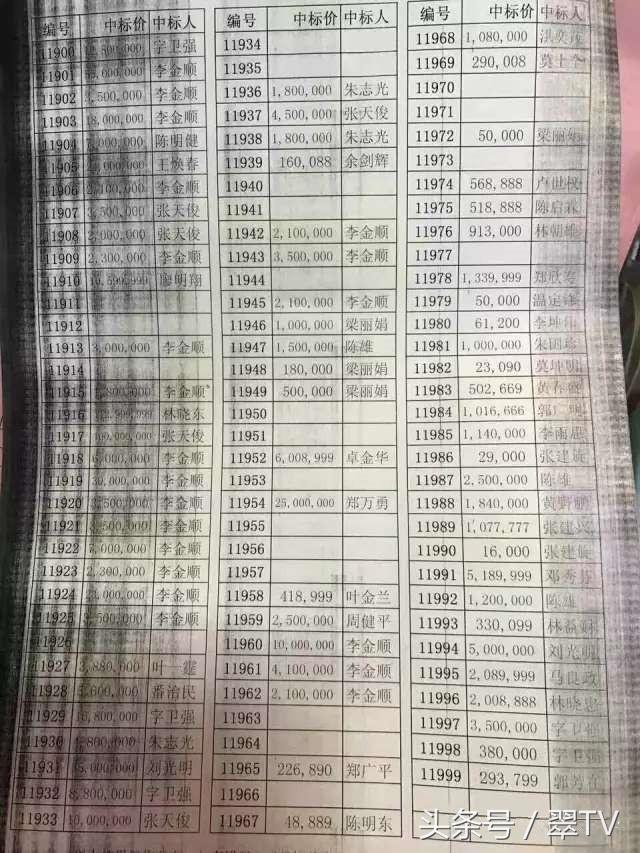 编号 中标价 中标人
11900 宇卫强
11901 李金顺
11902 3,500,000 李金顺
11903 18,000,000 李金顺
11904 陈明健
11905 王焕春
11906 2,100,000 李金顺
11907 3,500,000 张天俊
11908 2,000,000 张天俊
11909 2,300,000 李金顺
11910 10,599,999 廖明翔
11911
11912
11913 3,000,000 李金顺
11914
11915 1,800,000 李金顺
11916 林晓东
11917 张天俊
11918 6,000,000 李金顺
11919 30,000,000 李金顺
11920 3,500,000 李金顺
11921 3,500,000 李金顺
11922 7,000,000 李金顺
11923 2,300,000 李金顺
11924 李金顺
11925 3,500,000 李金顺
11926
11927 3,880,000 叶一霆
11928 5,600,000 番治民
11929 16,800,000 宇卫强
11930 4,800,000 朱志光
11931 刘光明
11932 8,800,000 宇卫强
11933 10,000,000 张天俊
编号 中标价 中标人
11934
11935
11936 1,800,000 朱志光
11937 4,500,000 张天俊
11938 1,800,000 朱志光
11939 160,088 余剑辉
11940
11941
11942 2,100,000 李金顺
11943 3,500,000 李金顺
11944
11945 2,100,000 李金顺
11946 1,000,000 梁丽娟
11947 1,500,000 陈雄
11948 180,000 梁丽娟
11949 500,000 梁丽娟
11950
11951
11952 6,008,999 卓金华
11953
11954 25,000,000 郑万勇
11955
11956
11957
11958 418,999 叶金兰
11959 2,500,000 周健平
11960 10,000,000 李金顺
11961 4,100,000 李金顺
11962 2,100,000 李金顺
11963
11964
11965 226,890 郑广平
11966
11967 48,889 陈明东
编号 中标价 中标人
11968 1,080,000
11969 290,008
11970
11971
11972 50,000 梁丽娟
11973
11974 568,888
11975 518,888
11976 913,000 林朝雄
11977
11978 1,339,999
11979 50,000
11980 61,200
11981 1,000,000
11982 23,090 莫坤明
11983 502,669
11984 1,016,666
11985 1,140,000
11986 29,000 张建旋
11987 2,500,000 陈雄
11988 1,840,000 黄野鹏
11989 1,077,777 张建兴
11990 16,000 张建旋
11991 5,189,999
11992 1,200,000 陈雄
11993 330,099
11994 5,000,000 刘光明
11995 2,089,999 马良政
11996 2,008,888 林晓忠
11997 3,500,000 宇卫强
11998 380,000 宇卫强
11999 293,799
头条号 / 翠TV